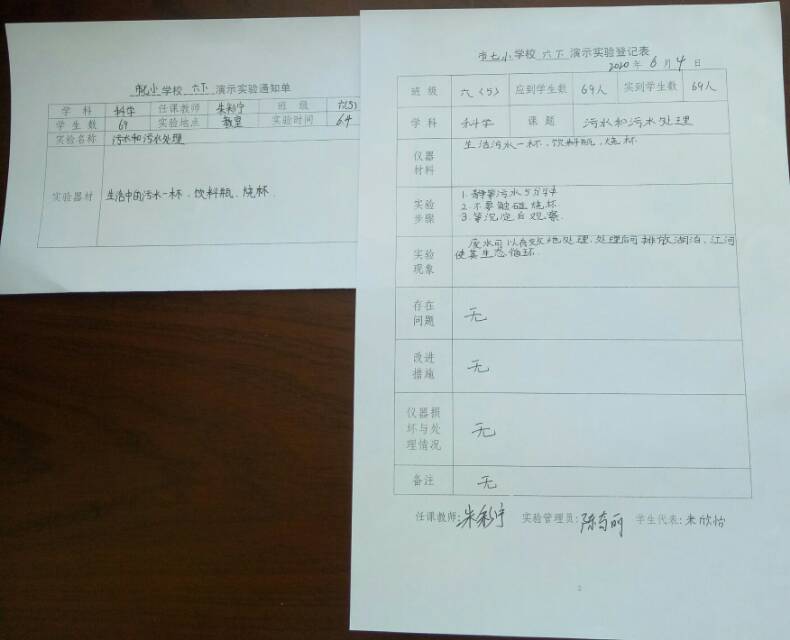 市七小学校 六下 演示实验通知单
学科 科学 任课教师 朱彩宁 班级 六(5)
学生数 69 实验地点 教室 实验时间 6.4
实验名称 污水和污水处理
实验器材 生活中的污水一杯、饮料瓶、烧杯.
市七小学校 六下 演示实验登记表
2020年6月4日
班级 六(5) 应到学生数 69人 实到学生数 69人
学科 科学 课题 污水和污水处理
仪器材料 生活污水一杯、饮料瓶、烧杯.
实验步骤 1.静置污水5分钟
2.不要触碰烧杯
3.等沉淀后观察.
实验现象 废水可以有效地处理,处理后可排放湖泊、江河
使其生态循环.
存在问题 无
改进措施 无
仪器损坏与处理情况 无
备注 无
任课教师:朱彩宁 实验管理员:陈 丽 学生代表:朱欣怡
2